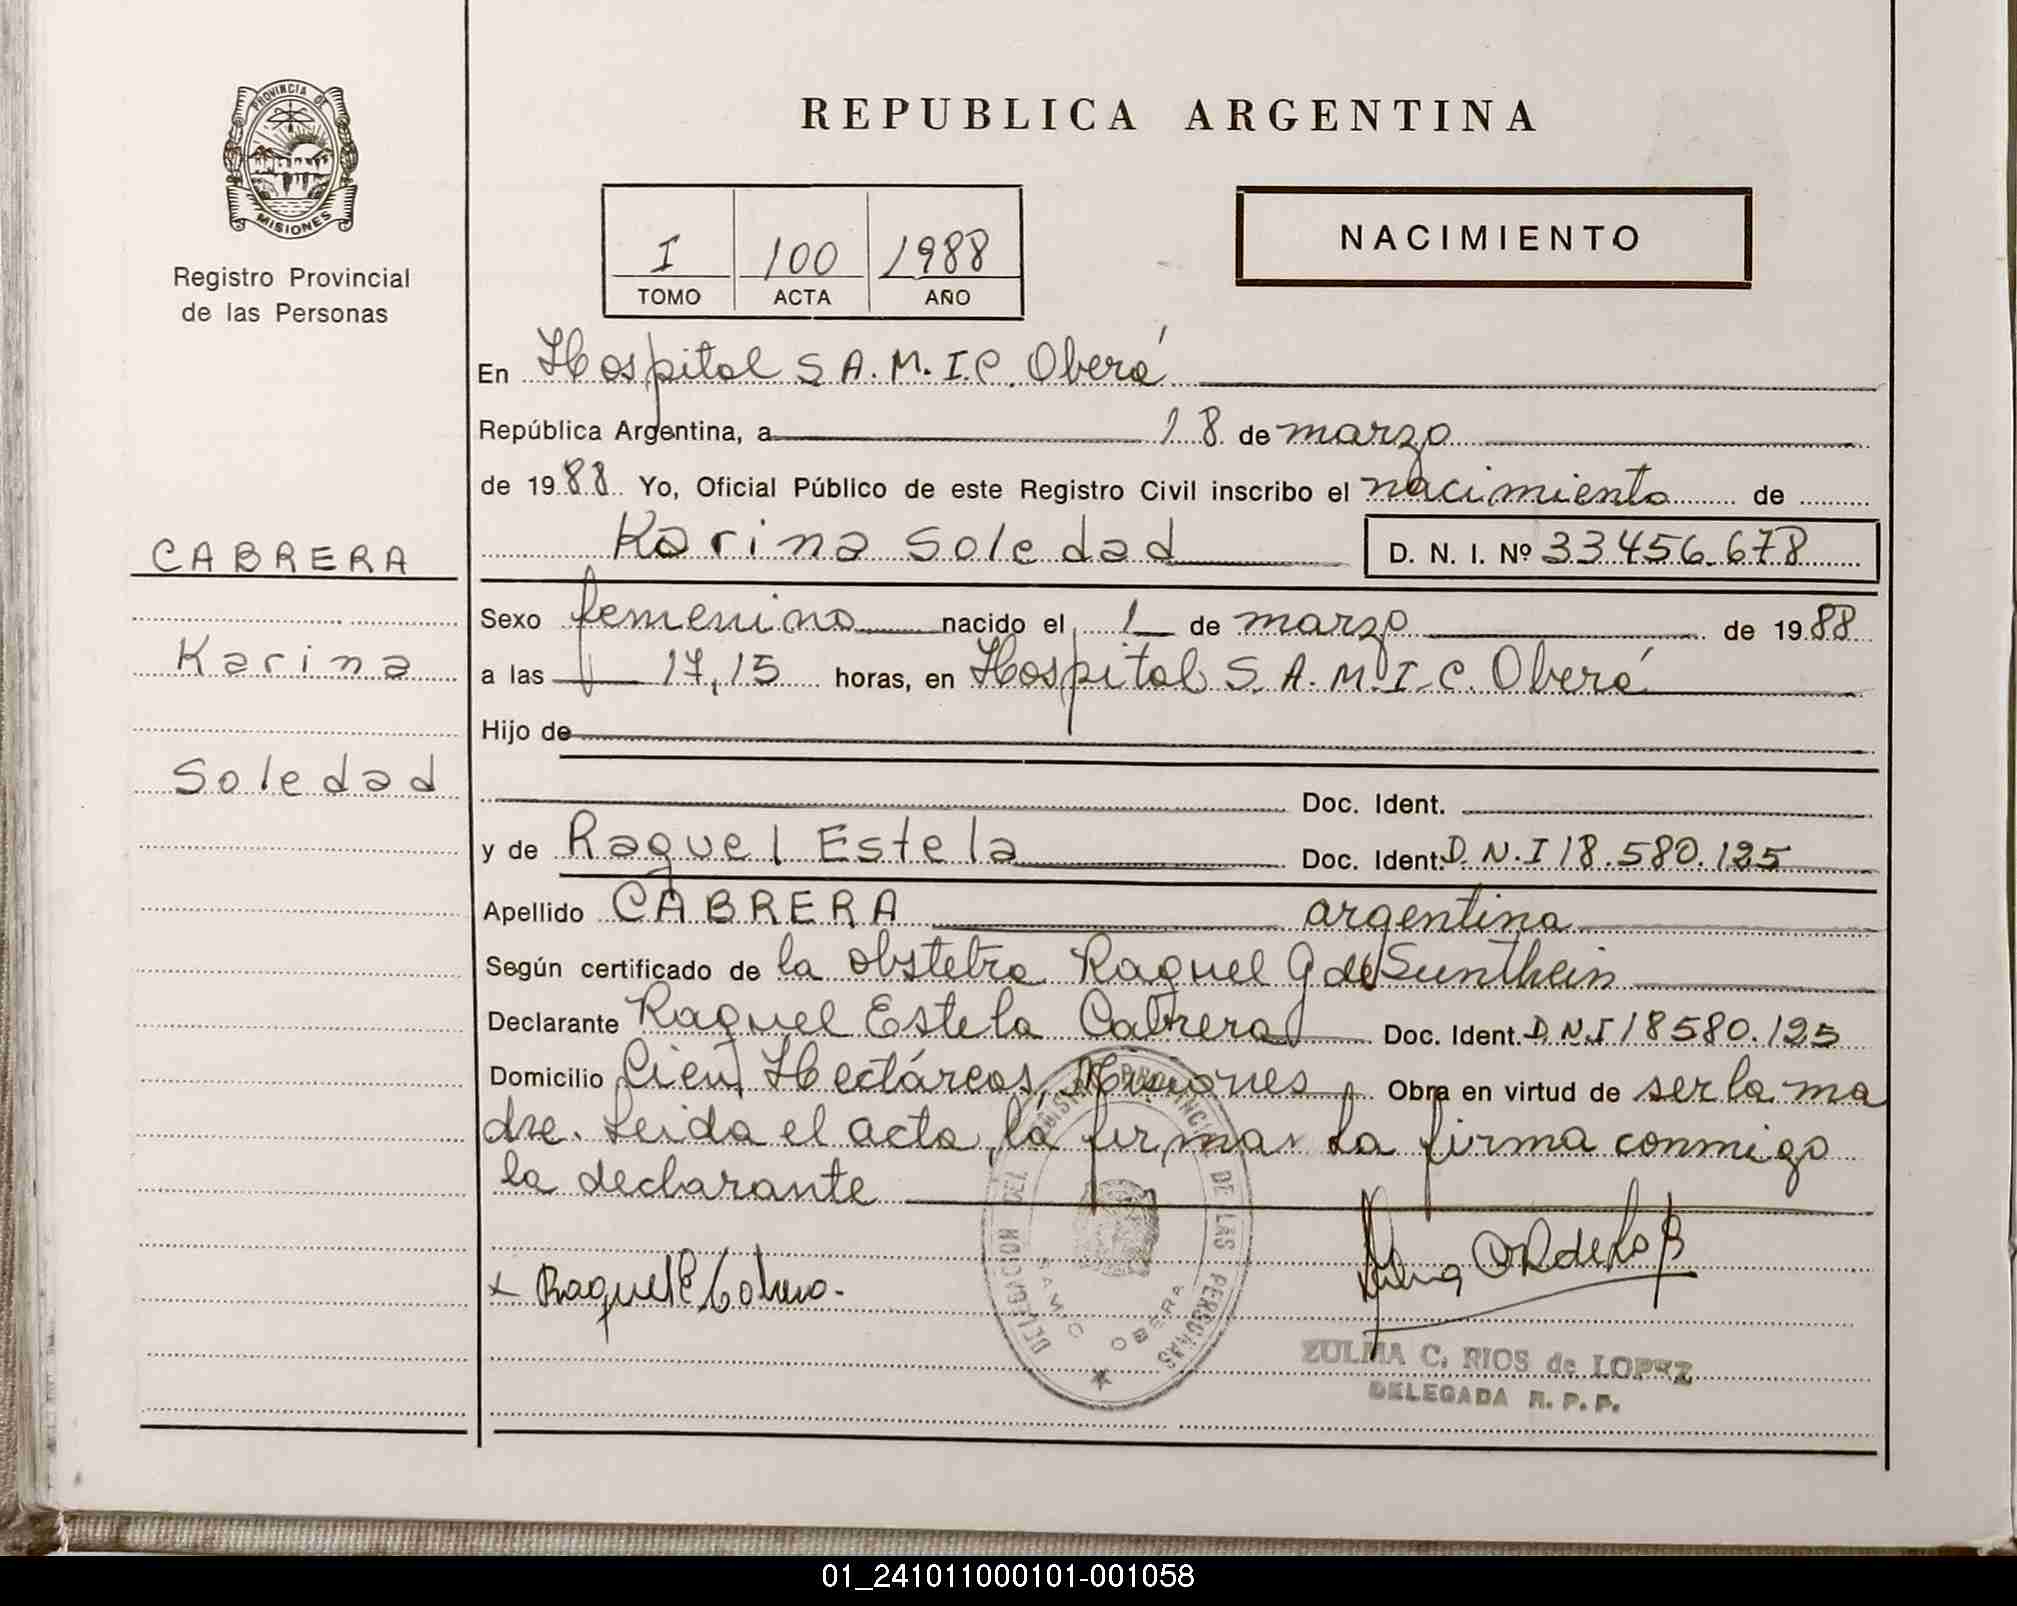 PROVINCIA DE
MISIONES
Registro Provincial
de las Personas
CABRERA
Karina
Soledad
REPUBLICA ARGENTINA
I 100 1988
TOMO ACTA AÑO
NACIMIENTO
En Hospital S.A.M.I.C. Oberá
República Argentina, a 18 de marzo
de 1988 Yo, Oficial Público de este Registro Civil inscribo el nacimiento de
Karina Soledad D. N. I. Nº 33.456.678
Sexo femenino nacido el 1 de marzo de 1988
a las 17,15 horas, en Hospital S.A.M.I.C. Oberá
Hijo de
Doc. Ident.
y de Raquel Estela Doc. Ident. D.N.I 18.580.125
Apellido CABRERA argentina
Según certificado de la obstetra Raquel G de Sunthein
Declarante Raquel Estela Cabrera Doc. Ident. D.N.I 18580.125
Domicilio Cien Hectáreas, Misiones Obra en virtud de ser la ma
dre. Leida el acta, la firma la firma conmigo
la declarante
x Raquel E Cabrera.
DELEGACION DEL REGISTRO PROVINCIAL DE LAS PERSONAS
SAMIC OBERA
ZULMA C. RIOS de LOPEZ
DELEGADA R. P. P.
01_241011000101-001058